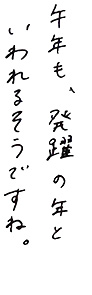 午年も、発躍の年と
いわれるそうですね。